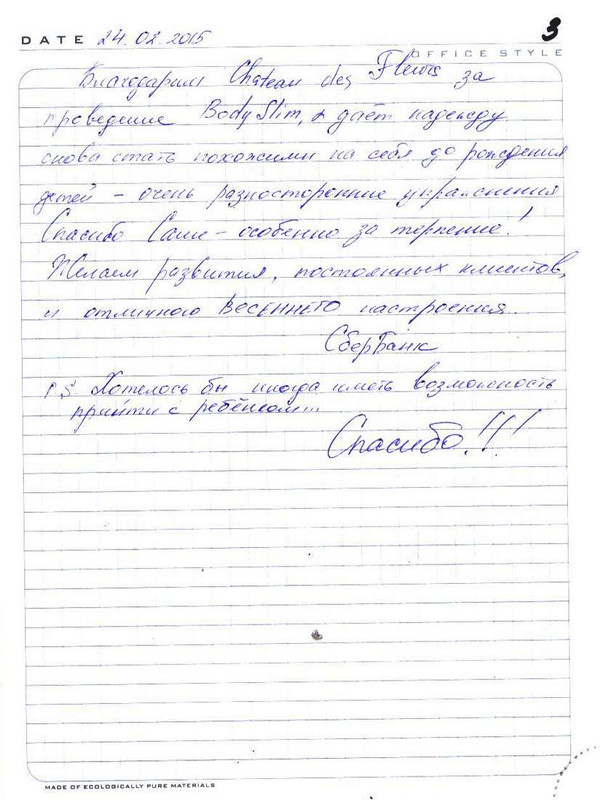 3
DATE 24.02.2015
OFFICE STYLE
Благодарим Chateau des Fleurs за
проведение Body Slim, & даёт надежду
снова стать похожими на себя до рождения
детей – очень разносторонние упражнения
Спасибо Саше – особенно за терпение!
Желаем развития, постоянных клиентов,
и отличного ВЕСЕННЕГО настроения.
СберБанк
P.S. Хотелось бы иногда иметь возможность
прийти с ребёнком...
Спасибо!!!
MADE OF ECOLOGICALLY PURE MATERIALS